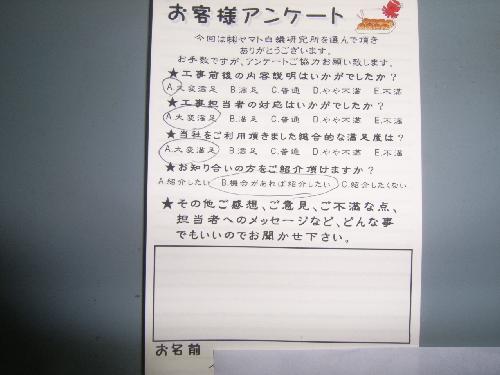 お客様アンケート
今回は㈱ヤマト白蟻研究所を選んで頂き
ありがとうございます。
お手数ですが、アンケートご協力お願い致します。
★工事前後の内容説明はいかがでしたか？
A.大変満足 B.満足 C.普通 D.やや不満 E.不満
★工事担当者の対応はいかがでしたか？
A.大変満足 B.満足 C.普通 D.やや不満 E.不満
★当社をご利用頂きました総合的な満足度は？
A.大変満足 B.満足 C.普通 D.やや不満 E.不満
★お知り合いの方をご紹介頂けますか？
A.紹介したい B.機会があれば紹介したい C.紹介したくない
★その他ご感想、ご意見、ご不満な点、
担当者へのメッセージなど、どんな事
でもいいのでお聞かせ下さい。
お名前